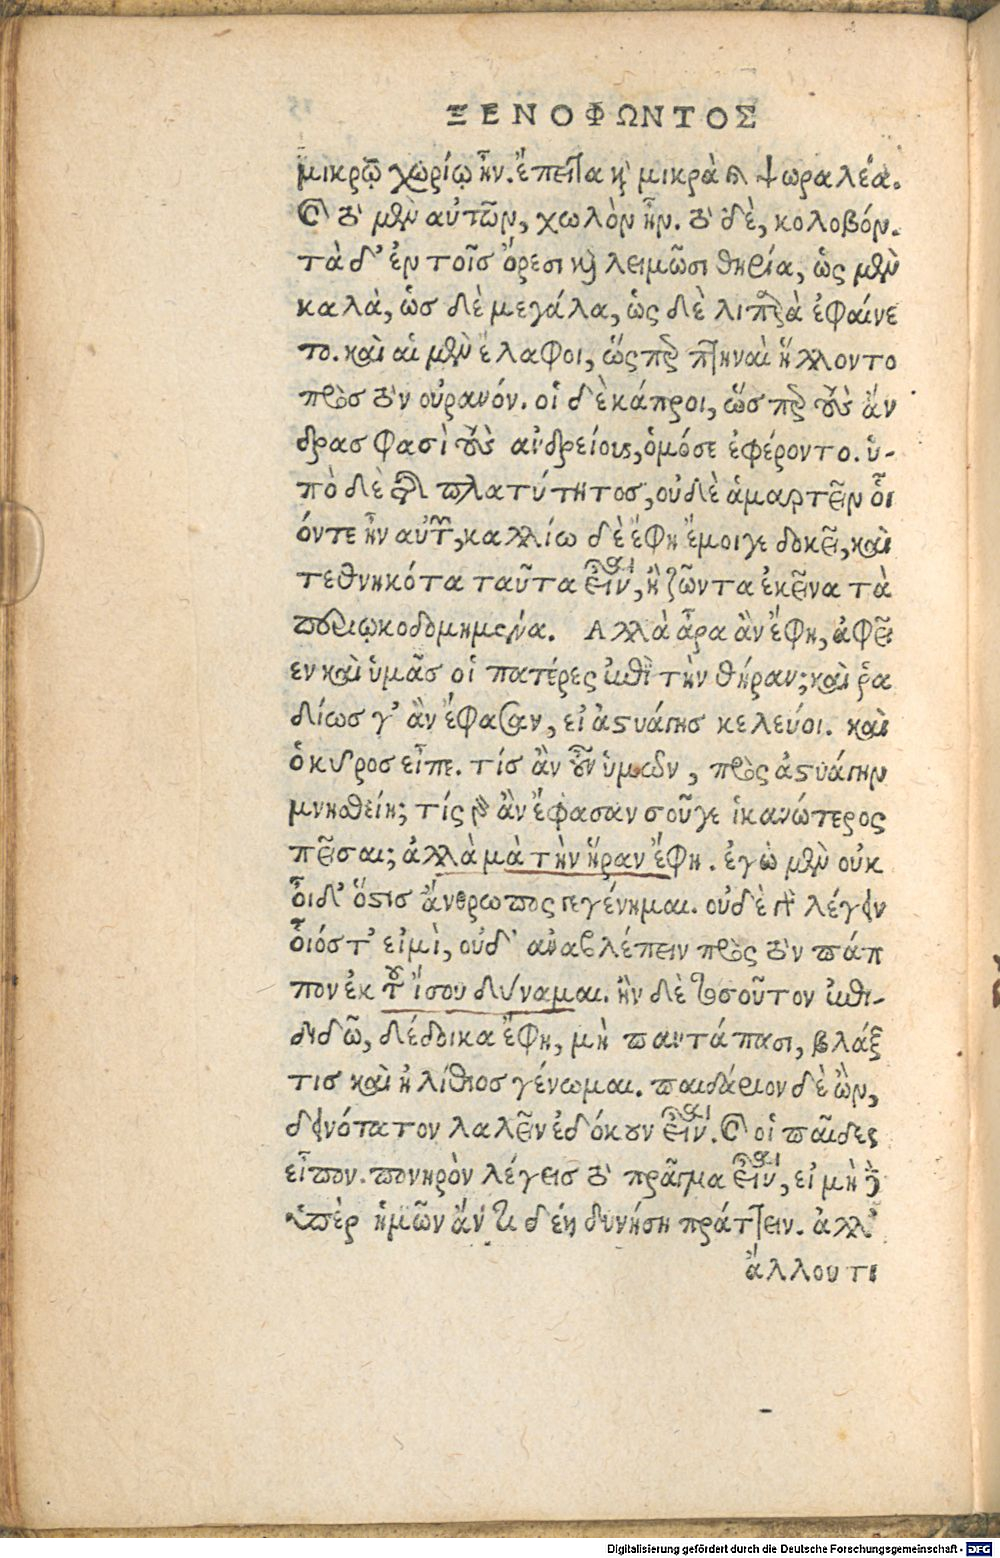 ΞΕΝΟΦΩΝΤΟΣ
μικρῷ χωρίῳ ἦν. ἔπειτα καὶ μικρὰ καὶ ψωραλέα.
καὶ τὸ μὲν αὐτῶν, χωλὸν ἦν. τὸ δὲ, κολοβόν.
τὰ δ' ἐν τοῖς ὄρεσι καὶ λειμῶσι θηρία, ὡς μὲν
καλὰ, ὡς δὲ μεγάλα, ὡς δὲ λιπαρὰ ἐφαίνε
το. καὶ αἱ μὲν ἔλαφοι, ὥσπερ πτηναὶ ἥλλοντο
πρὸς τὸν οὐρανόν. οἱ δὲ κάπροι, ὥσπερ τοὺς ἄν
δρας φασὶ τοὺς ἀνδρείους, ὁμόσε ἐφέροντο. ὑ-
πὸ δὲ τῆς πλατύτητος, οὐδὲ ἁμαρτεῖν οἷ
όντε ἦν αὐτῶν, καλλίω δὲ ἔφη ἔμοιγε δοκεῖ, καὶ
τεθνηκότα ταῦτα εἶναι, ἢ ζῶντα ἐκεῖνα τὰ
περιῳκοδομημένα. Αλλὰ ἆρα ἂν ἔφη, ἀφεῖ
εν καὶ ὑμᾶς οἱ πατέρες ἐπὶ τὴν θήραν; καὶ ῥα
δίως γ' ἂν ἔφασαν, εἰ ἀστυάγης κελεύοι. καὶ
ὁ κῦρος εἶπε. τίς ἂν οὖν ὑμῶν, πρὸς ἀστυάγην
μνησθείη; τίς γὰρ ἂν ἔφασαν σοῦγε ἱκανώτερος
πεῖσαι; ἀλλὰ μὰ τὴν ἥραν ἔφη. ἐγὼ μὲν οὐκ
οἶδ' ὅστις ἄνθρωπος γεγένημαι. οὐδὲ γὰρ λέγειν
οἷόστ' εἰμὶ, οὐδ' ἀναβλέπειν πρὸς τὸν πάπ
πον ἐκ τοῦ ἴσου δύναμαι. ἢν δὲ τοσοῦτον ἐπι-
διδῶ, δέδοικα ἔφη, μὴ παντάπασι, βλάξ
τις καὶ ἠλίθιος γένωμαι. παιδάριον δὲ ὢν,
δεινότατον λαλεῖν ἐδόκουν εἶναι. καὶ οἱ παῖδες
εἶπον. πονηρὸν λέγεις τὸ πρᾶγμα εἶναι, εἰ μὴ δὲ
ὑπὲρ ἡμῶν ἄν τι δέῃ δυνήσῃ πράττειν. ἀλλ'
ἄλλου τι
Digitalisierung gefördert durch die Deutsche Forschungsgemeinschaft - DFG